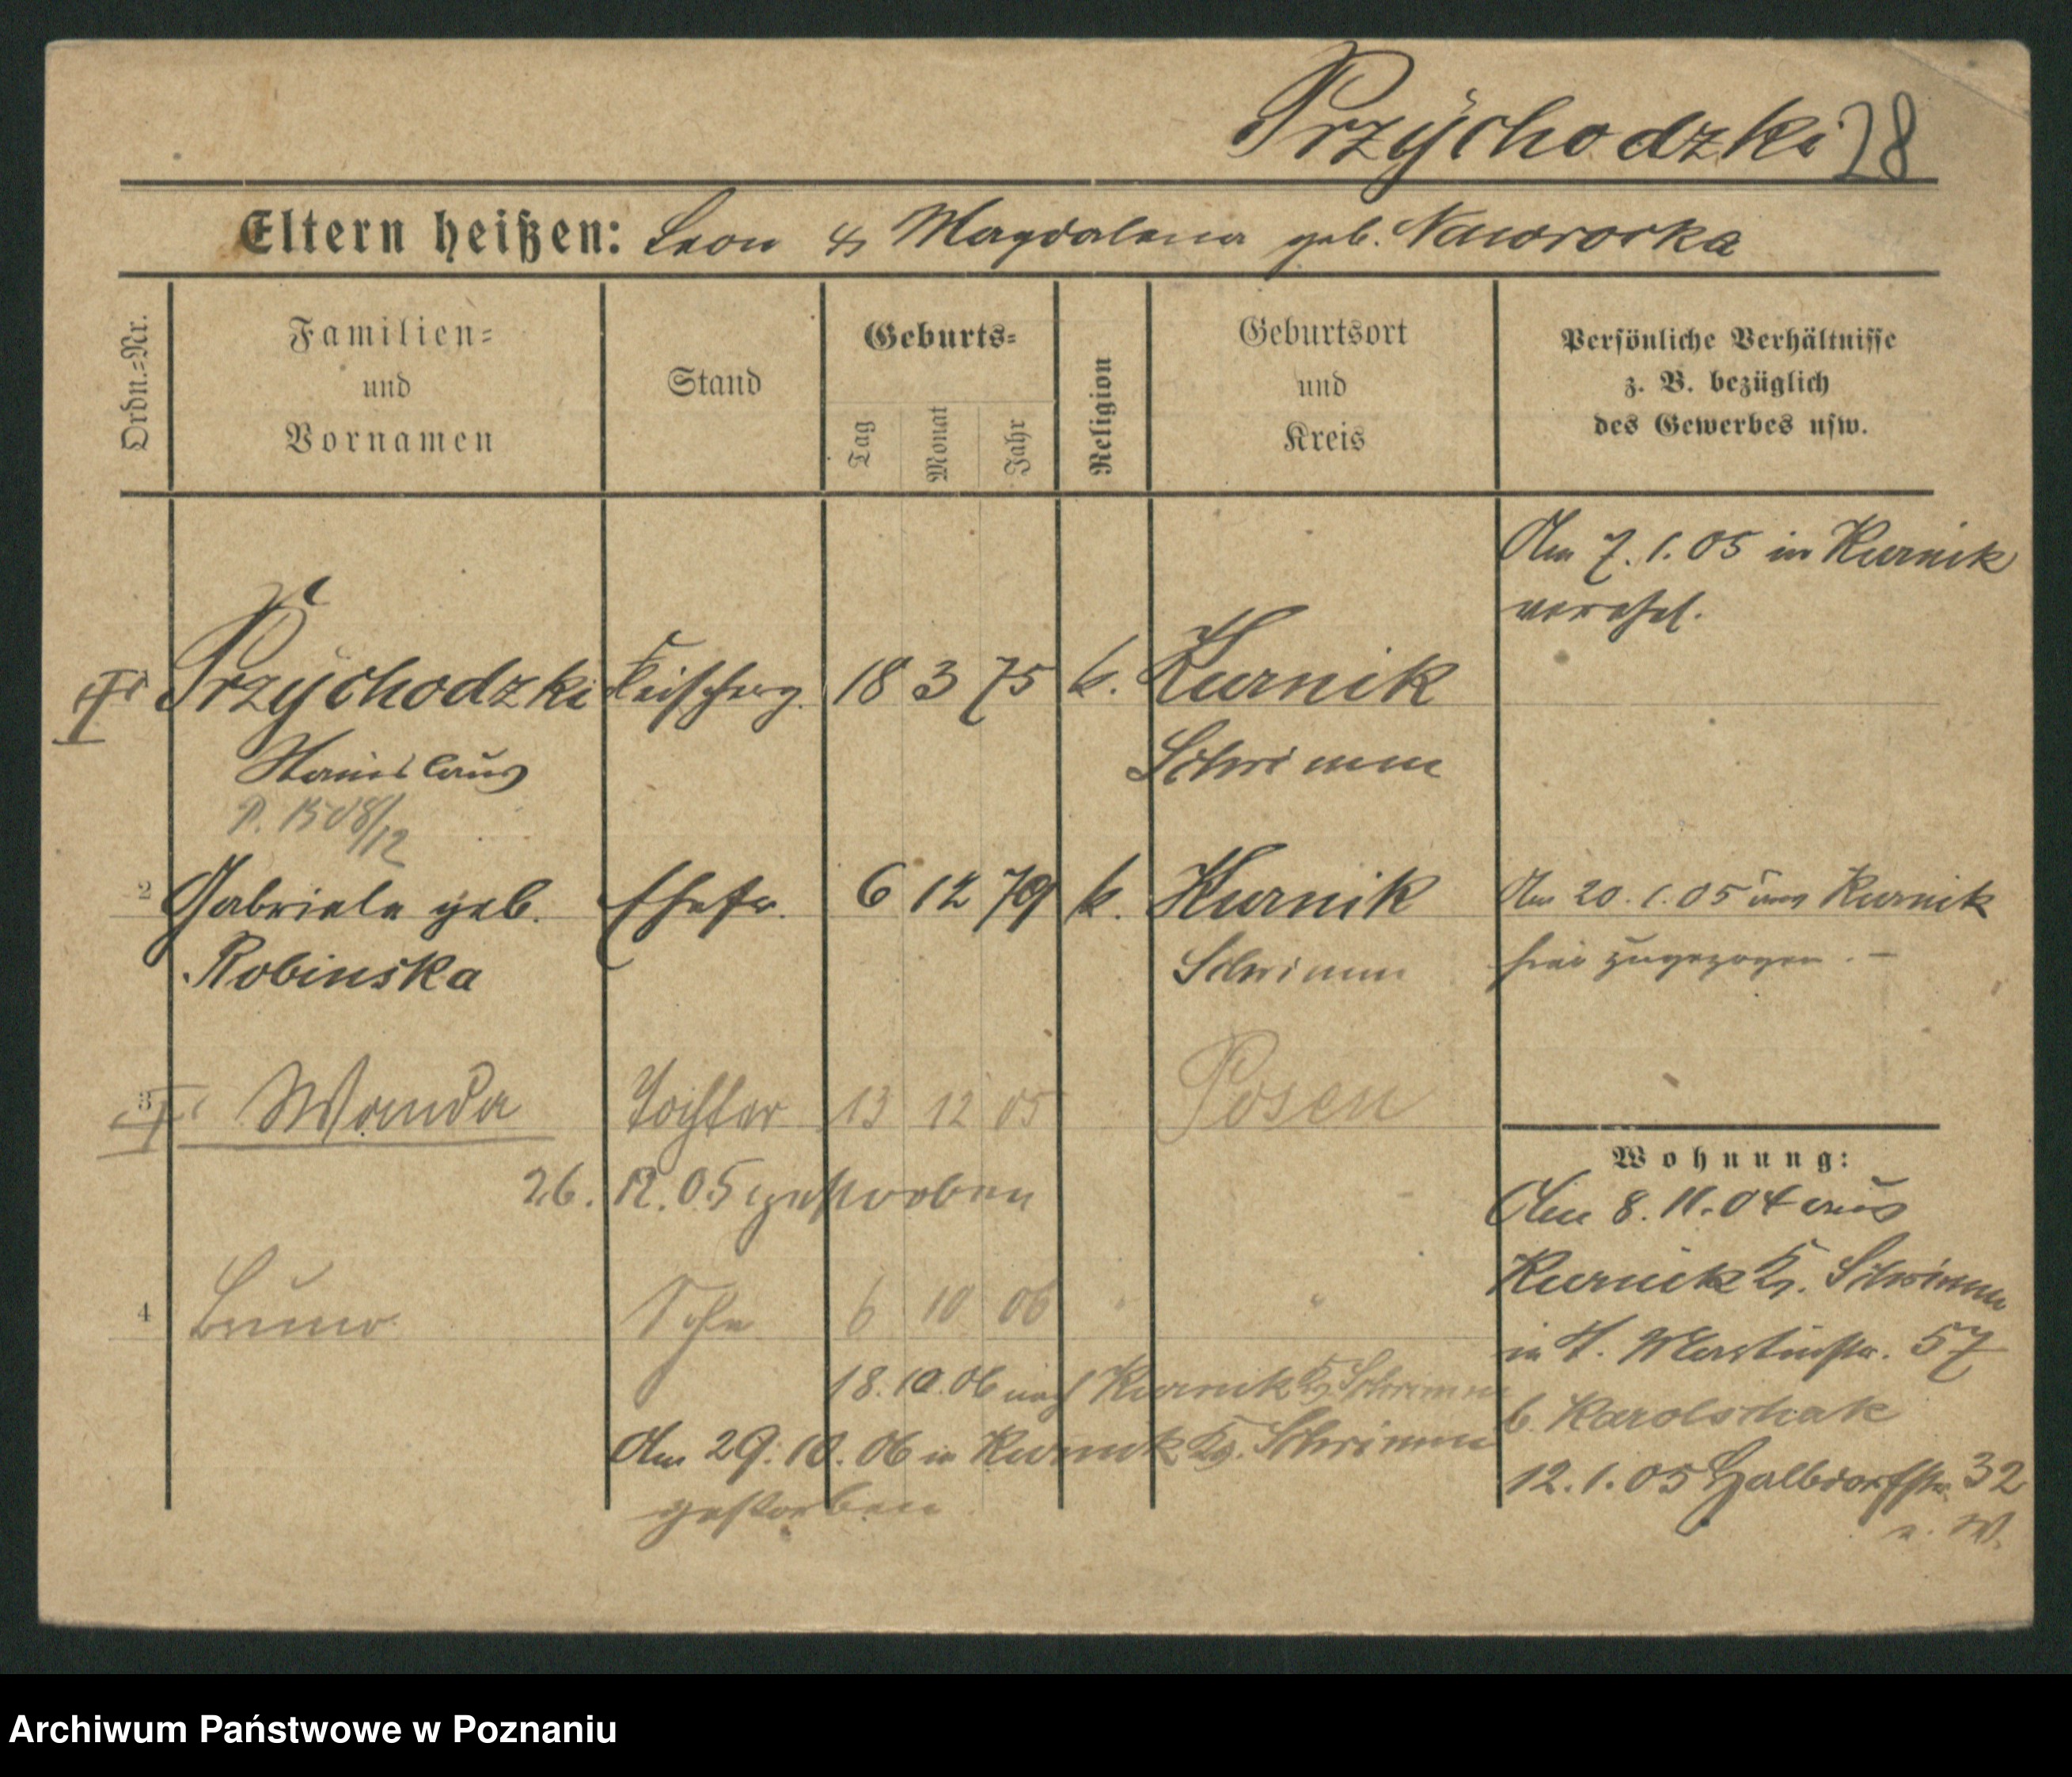 Przÿchodzki 28
Eltern heißen: Leon & Magdalena geb. Nawrocka
Ordn.=Nr.
Familien=
und
Vornamen
Stand
Geburts=
Tag
Monat
Jahr
Religion
Geburtsort
und
Kreis
Persönliche Verhältnisse
z. B. bezüglich
des Gewerbes usw.
Am 7. 1. 05 in Kurnik
verehel.
Przÿchodzki 18 3 75 k. Kurnik
Stanislaus Schrimm
P. 1508/12
2 Gabriele geb. Ehefr. 6 12 79 k. Kurnik
Robinska Schrimm
Am 20. 1. 05 aus Kurnik
hier zugezogen. –
3 Wanda Tochter 13 12 05 Posen
26. 12. 05 gestorben
4 Bruno Sohn 6 10 06 " "
18. 10. 06 nach Kurnik Kr. Schrimm
Am 29. 10. 06 in Kurnik Kr. Schrimm
gestorben
Wohnung:
Am 8. 11. 04 aus
Kurnik Kr. Schrimm
in St. Martinstr. 57
b. Karolschak
12. 1. 05 Halbdorfstr. 32
u. W.
Archiwum Państwowe w Poznaniu